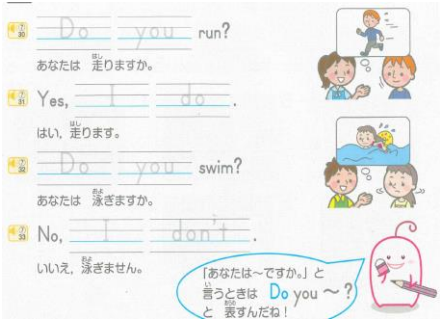 ⑦30 Do you run?
あなたは 走りますか。
⑦31 Yes, I do .
はい, 走ります。
⑦32 Do you swim?
あなたは 泳ぎますか。
⑦33 No, I don't .
いいえ, 泳ぎません。
「あなたは〜ですか。」と
言うときは Do you 〜 ?
と 表すんだね!